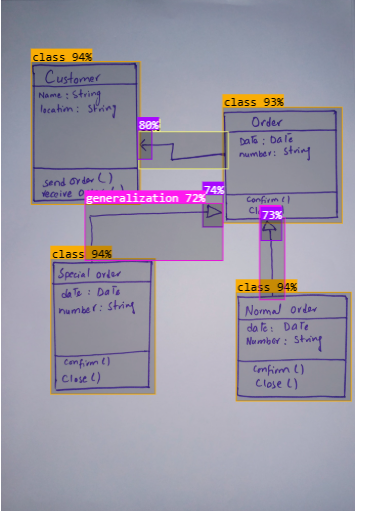 class 94%
Customer
Name : String
location : String
send order ( )
class 93%
Order
Date : Date
number : String
Confirm ( )
80%
generalization 72%
74%
73%
class 94%
Special order
date : Date
number : String
Confirm ( )
Close ( )
class 94%
Normal order
date : Date
Number : String
Confirm ( )
Close ( )